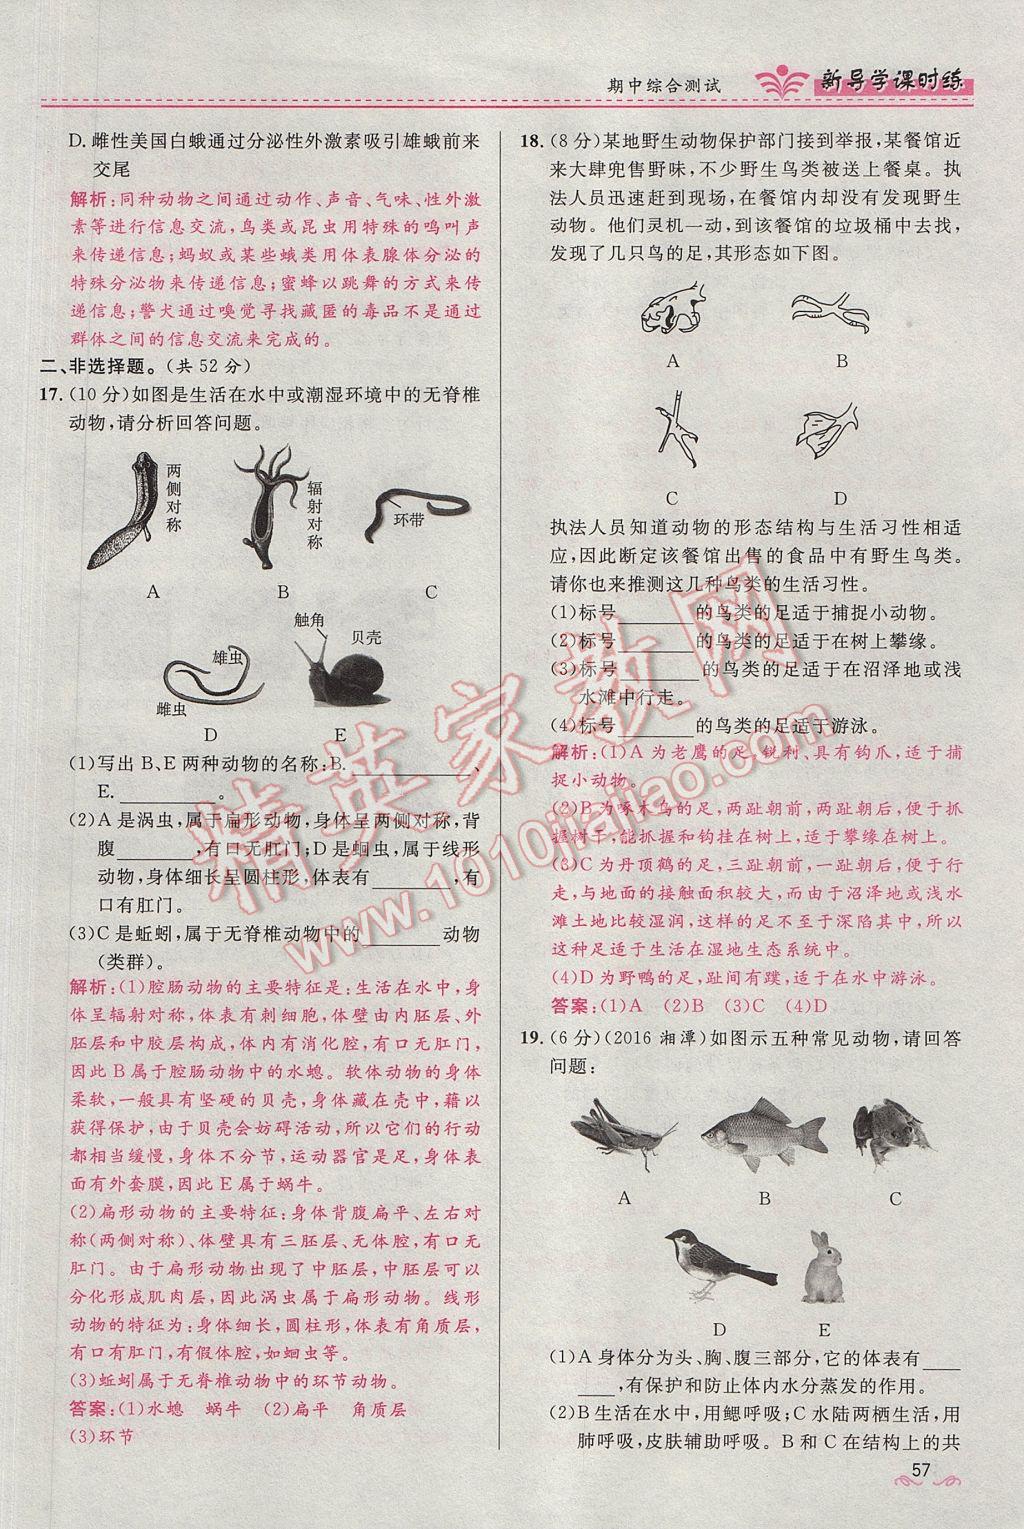 期中综合测试
新导学课时练
D. 雌性美国白蛾通过分泌性外激素吸引雄蛾前来
交尾
解析:同种动物之间通过动作、声音、气味、性外激
素等进行信息交流,鸟类或昆虫用特殊的鸣叫声
来传递信息;蚂蚁或某些蛾类用体表腺体分泌的
特殊分泌物来传递信息;蜜蜂以跳舞的方式来传
递信息;警犬通过嗅觉寻找藏匿的毒品不是通过
群体之间的信息交流来完成的。
二、非选择题。(共 52 分)
17. (10 分)如图是生活在水中或潮湿环境中的无脊椎
动物,请分析回答问题。
两侧对称
辐射对称
环带
A B C
触角
贝壳
雄虫
雌虫
D E
(1)写出 B、E 两种动物的名称:B.________、
E.________。
(2)A 是涡虫,属于扁形动物,身体呈两侧对称,背
腹______,有口无肛门;D 是蛔虫,属于线形
动物,身体细长呈圆柱形,体表有______,有
口有肛门。
(3)C 是蚯蚓,属于无脊椎动物中的______动物
(类群)。
解析:(1)腔肠动物的主要特征是:生活在水中,身
体呈辐射对称,体表有刺细胞,体壁由内胚层、外
胚层和中胶层构成,体内有消化腔,有口无肛门,
因此 B 属于腔肠动物中的水螅。软体动物的身体
柔软,一般具有坚硬的贝壳,身体藏在壳中,藉以
获得保护,由于贝壳会妨碍活动,所以它们的行动
都相当缓慢,身体不分节,运动器官是足,身体表
面有外套膜,因此 E 属于蜗牛。
(2)扁形动物的主要特征:身体背腹扁平、左右对
称(两侧对称)、体壁具有三胚层、无体腔,有口无
肛门。由于扁形动物出现了中胚层,中胚层可以
分化形成肌肉层,因此涡虫属于扁形动物。线形
动物的特征为:身体细长,圆柱形,体表有角质层,
有口有肛门,有假体腔,如蛔虫等。
(3)蚯蚓属于无脊椎动物中的环节动物。
答案:(1)水螅 蜗牛 (2)扁平 角质层
(3)环节
18. (8 分)某地野生动物保护部门接到举报,某餐馆近
来大肆兜售野味,不少野生鸟类被送上餐桌。执
法人员迅速赶到现场,在餐馆内却没有发现野生
动物。他们灵机一动,到该餐馆的垃圾桶中去找,
发现了几只鸟的足,其形态如下图。
A B
C D
执法人员知道动物的形态结构与生活习性相适
应,因此断定该餐馆出售的食品中有野生鸟类。
请你也来推测这几种鸟类的生活习性。
(1)标号______的鸟类的足适于捕捉小动物。
(2)标号______的鸟类的足适于在树上攀缘。
(3)标号______的鸟类的足适于在沼泽地或浅
水滩中行走。
(4)标号______的鸟类的足适于游泳。
解析:(1)A 为老鹰的足,锐利、具有钩爪,适于捕
捉小动物。
(2)B 为啄木鸟的足,两趾朝前,两趾朝后,便于抓
握树干,能抓握和钩挂在树上,适于攀缘在树上。
(3)C 为丹顶鹤的足,三趾朝前,一趾朝后,便于行
走,与地面的接触面积较大,而由于沼泽地或浅水
滩土地比较湿润,这样的足不至于深陷其中,所以
这种足适于生活在湿地生态系统中。
(4)D 为野鸭的足,趾间有蹼,适于在水中游泳。
答案:(1)A (2)B (3)C (4)D
19. (6 分)(2016 湘潭)如图示五种常见动物,请回答
问题:
A B C
D E
(1)A 身体分为头、胸、腹三部分,它的体表有___
___,有保护和防止体内水分蒸发的作用。
(2)B 生活在水中,用鳃呼吸;C 水陆两栖生活,用
肺呼吸,皮肤辅助呼吸。B 和 C 在结构上的共
57
精英家教网
www.1010jiajiao.com